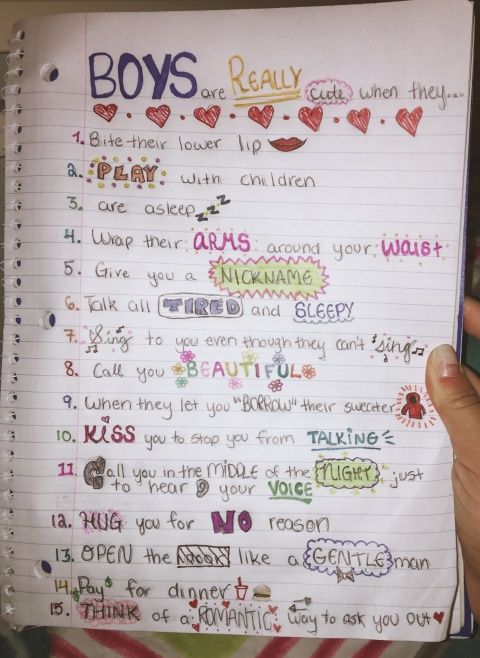 BOYS are REALLY cute when they....
1. Bite their lower lip
2. PLAY with children
3. are asleep zzz
4. Wrap their ARMS around your WAIST
5. Give you a NICKNAME
6. Talk all TIRED and SLEEPY
7. Sing to you even though they can't sing
8. Call you BEAUTIFUL
9. When they let you "BORROW" their sweater
10. KISS you to stop you from TALKING
11. Call you in the MIDDLE of the NIGHT just
to hear your VOICE
12. HUG you for NO reason
13. OPEN the door like a GENTLEman
14. Pay for dinner
15. THINK of a ROMANTIC way to ask you out